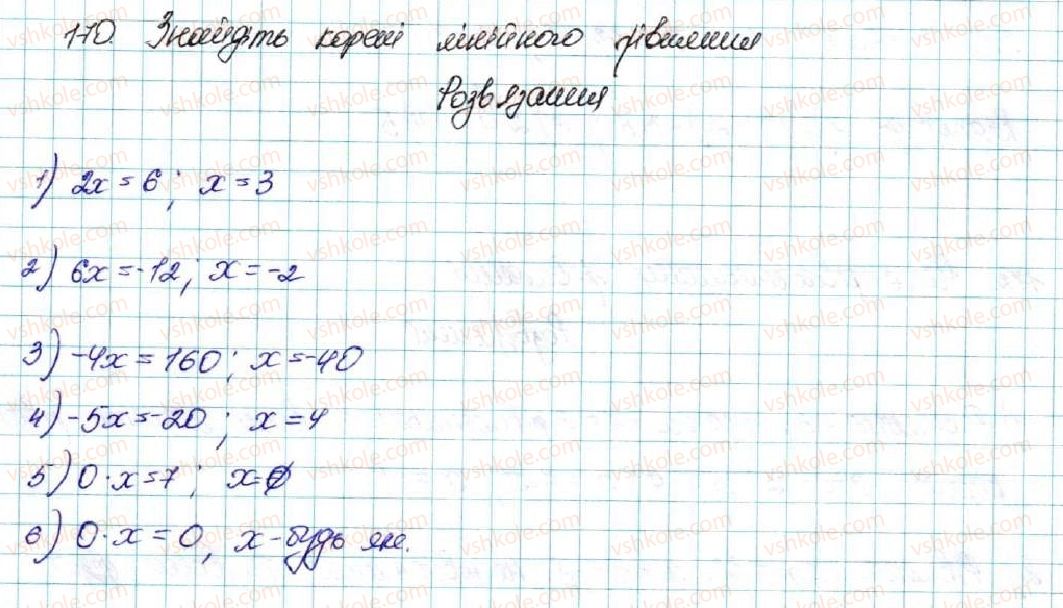 170. Знайдіть корені лінійного рівняння
Розв'язання
1) 2x = 6; x = 3
2) 6x = -12; x = -2
3) -4x = 160; x = -40
4) -5x = -20; x = 4
5) 0·x = 7; x = ∅
6) 0·x = 0, x - будь яке.